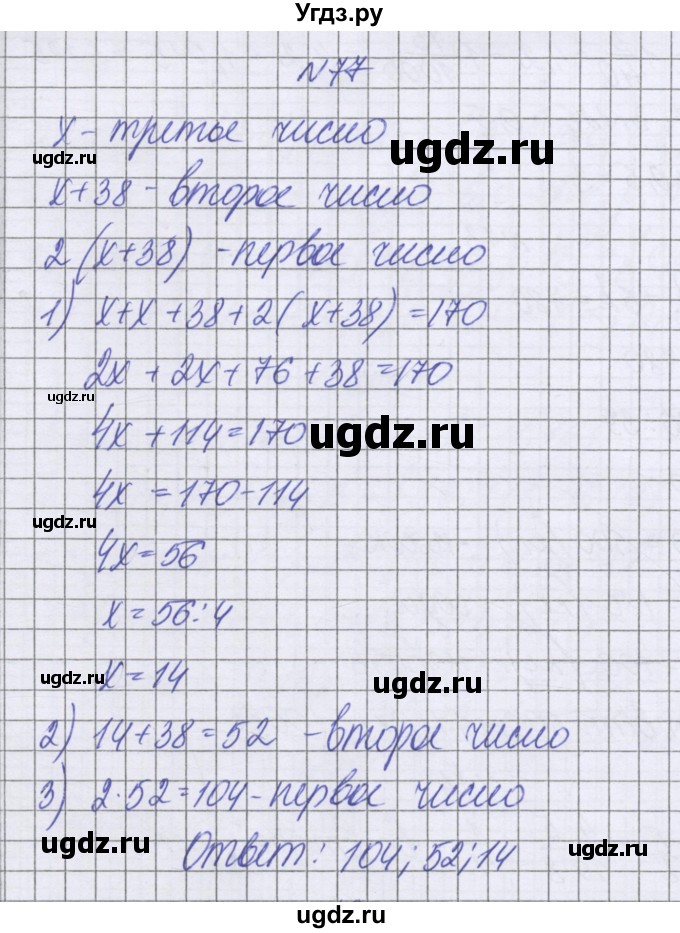 Угдз.ру
N77
x - третье число
ugdz.ru
ugdz.ru
x+38 - второе число
2(x+38) - первое число
ugdz.ru
1) x+x+38+2(x+38)=170
2x+2x+76+38=170
ugdz.ru
4x+114=170
ugdz.ru
4x=170-114
ugdz.ru
4x=56
x=56:4
x=14
ugdz.ru
ugdz.ru
2) 14+38=52 - второе число
3) 2·52=104 - первое число
ugdz.ru
ugdz.ru
Ответ: 104; 52; 14
ugdz.ru